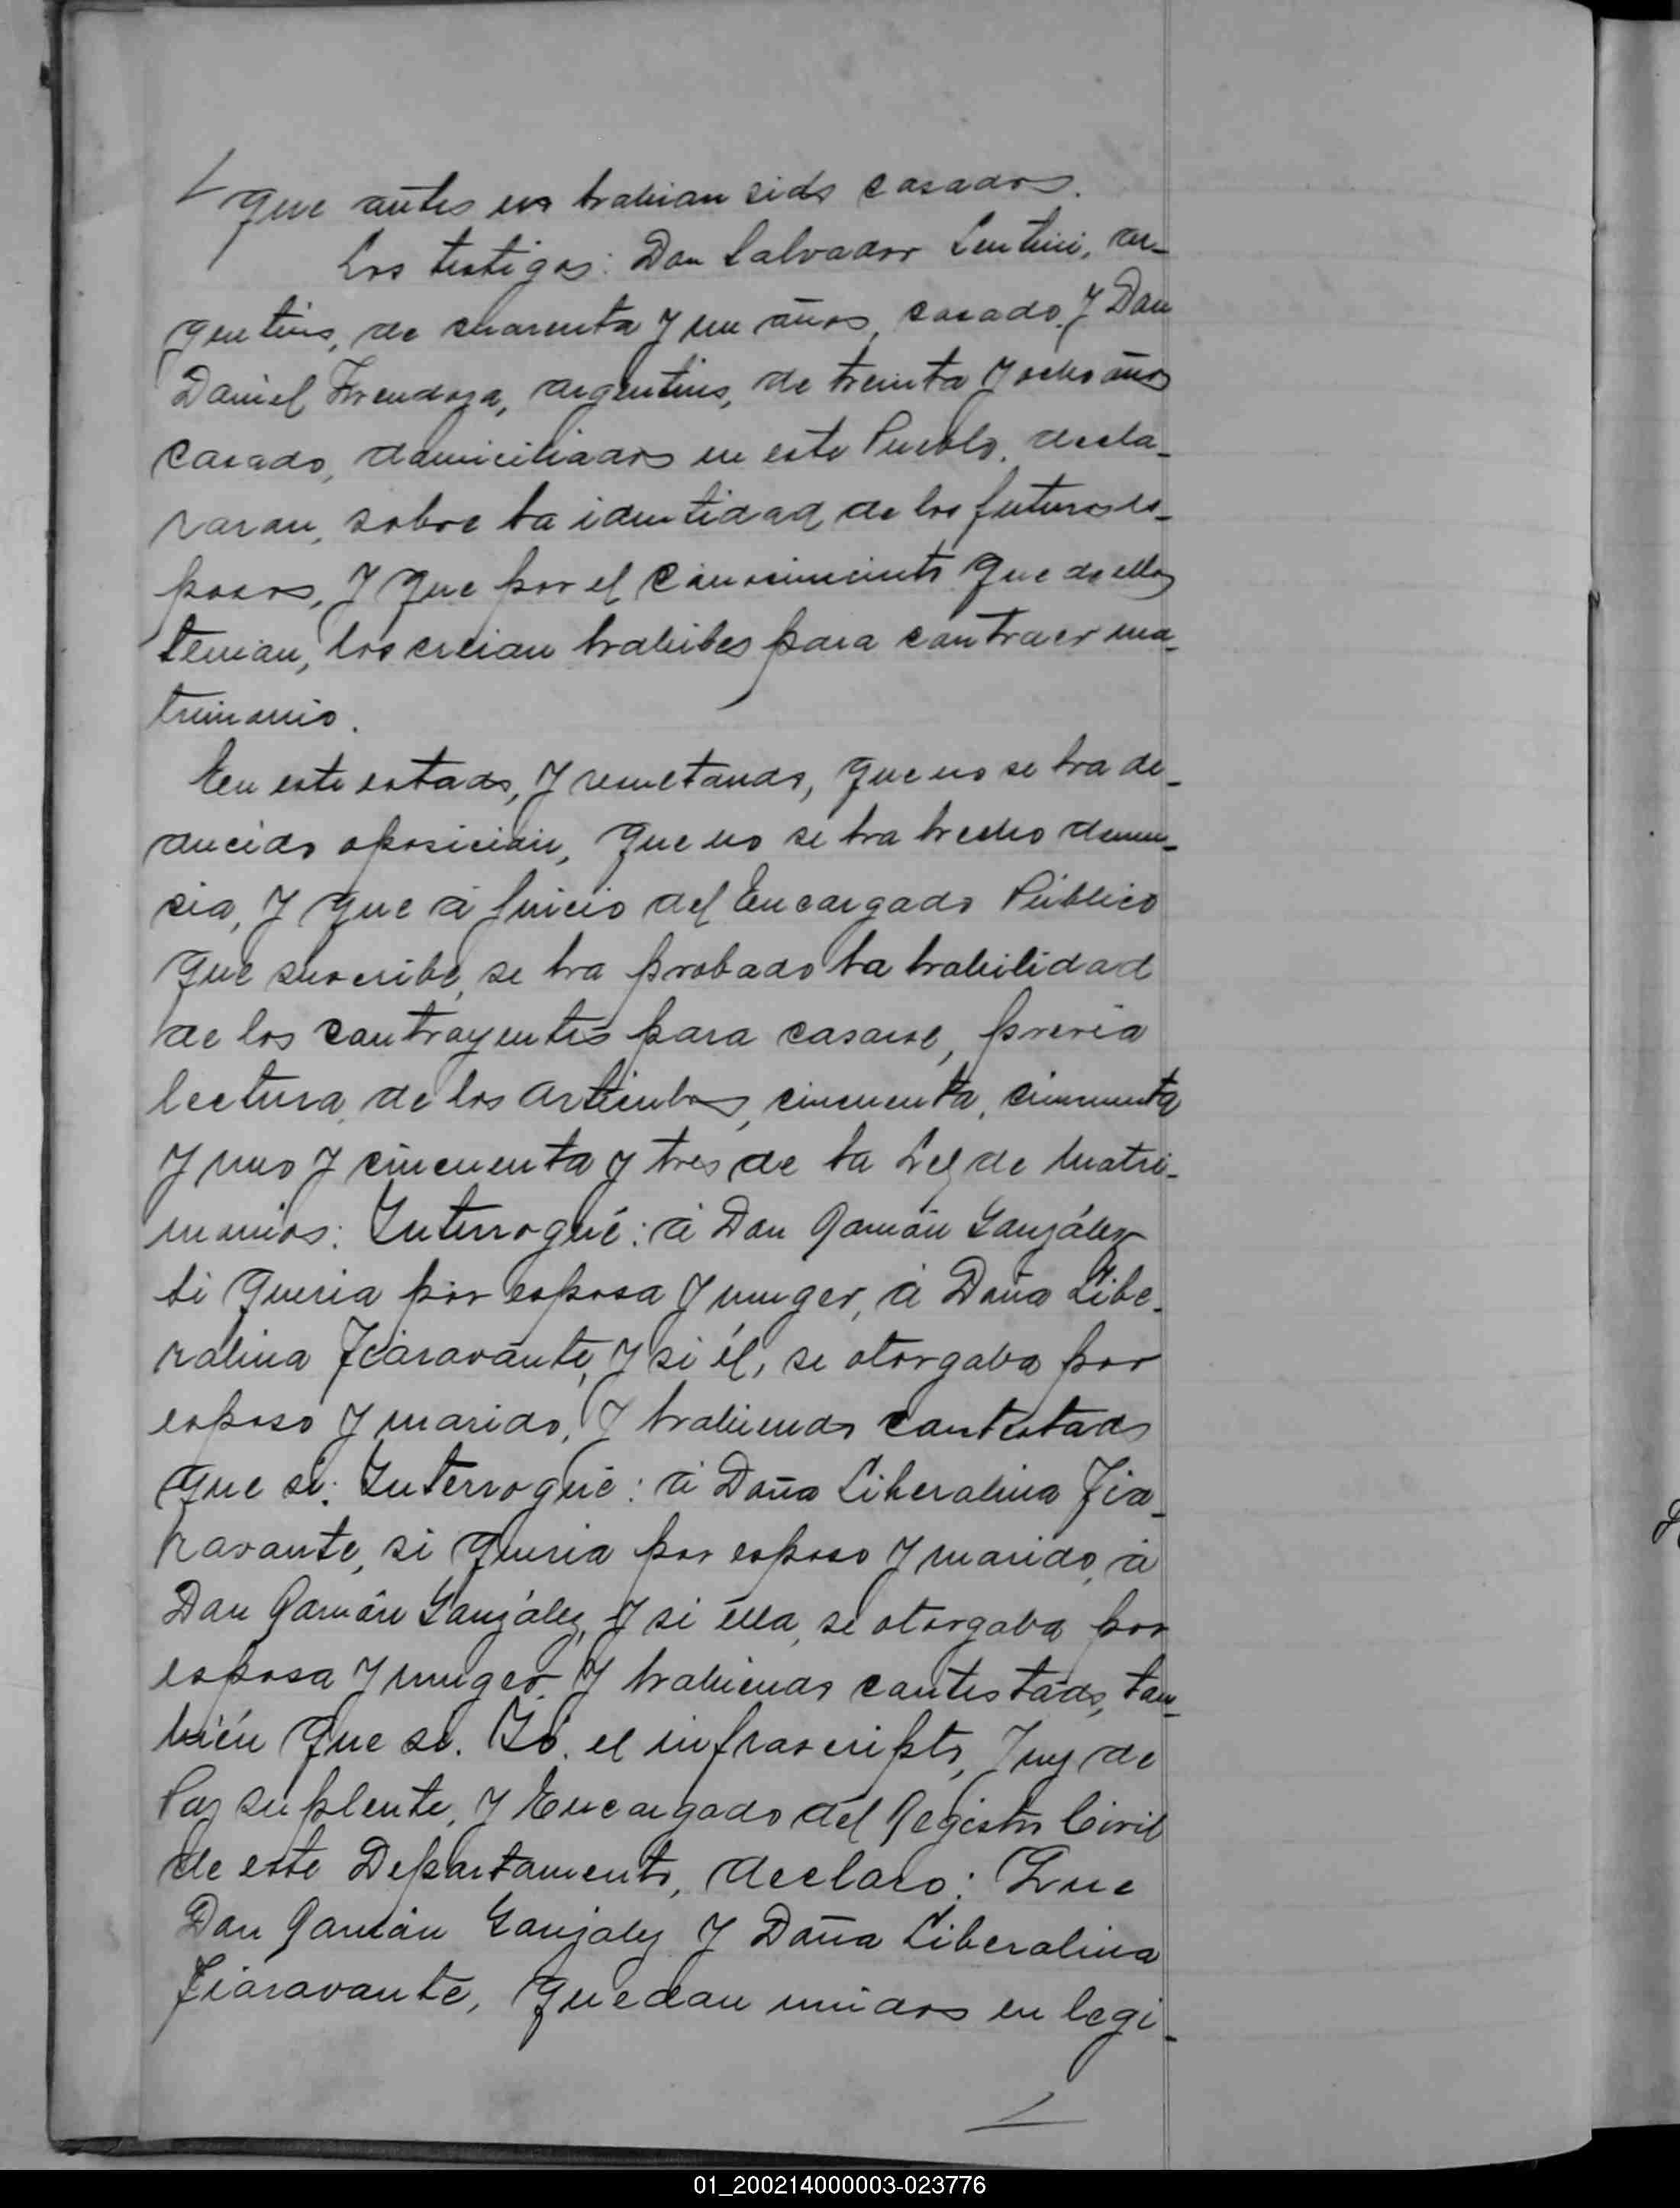 que antes no habian sido casados.
Los testigos: Don Salvador Lentini, ar-
gentino, de cuarenta y un años, casado, y Don
Daniel, argentino, de treinta y ocho años
casado, domiciliados en este Pueblo, decla-
raran, sobre la identidad de los futuros es-
posos, y que por el conocimiento que de ellos
tenian, los creian habiles para contraer ma-
trimonio.
En este estado, y resultando, que no se ha de-
ducido oposición, que no se ha hecho denun-
cia, y que á juicio del Encargado Público
que suscribe, se ha probado la habilidad
de los contrayentes para casarse, previa
lectura, de los Articulos, cincuenta, cincuenta
y uno y cincuenta y tres de la Ley de Matri-
monios: Interrogué: á Don Ramón González
si queria por esposa y muger, á Doña Libe-
ralina Fiaravante, y si él, se otorgaba por
esposo y marido, y habiendo contestado
que si: Interrogué: á Doña Liberalina Fia-
ravante, si queria por esposo y marido, á
Don Ramón González, y si élla, se otorgaba por
esposa y muger. y habiendo contestado, tam-
bién que si. Yó. el infrascripto, Juez de
Paz suplente, y Encargado del Registro Civil
de este Departamento, declaro: Que
Don Ramón González y Doña Liberalina
Fiaravante, quedan unidos en legi-
01_200214000003-023776